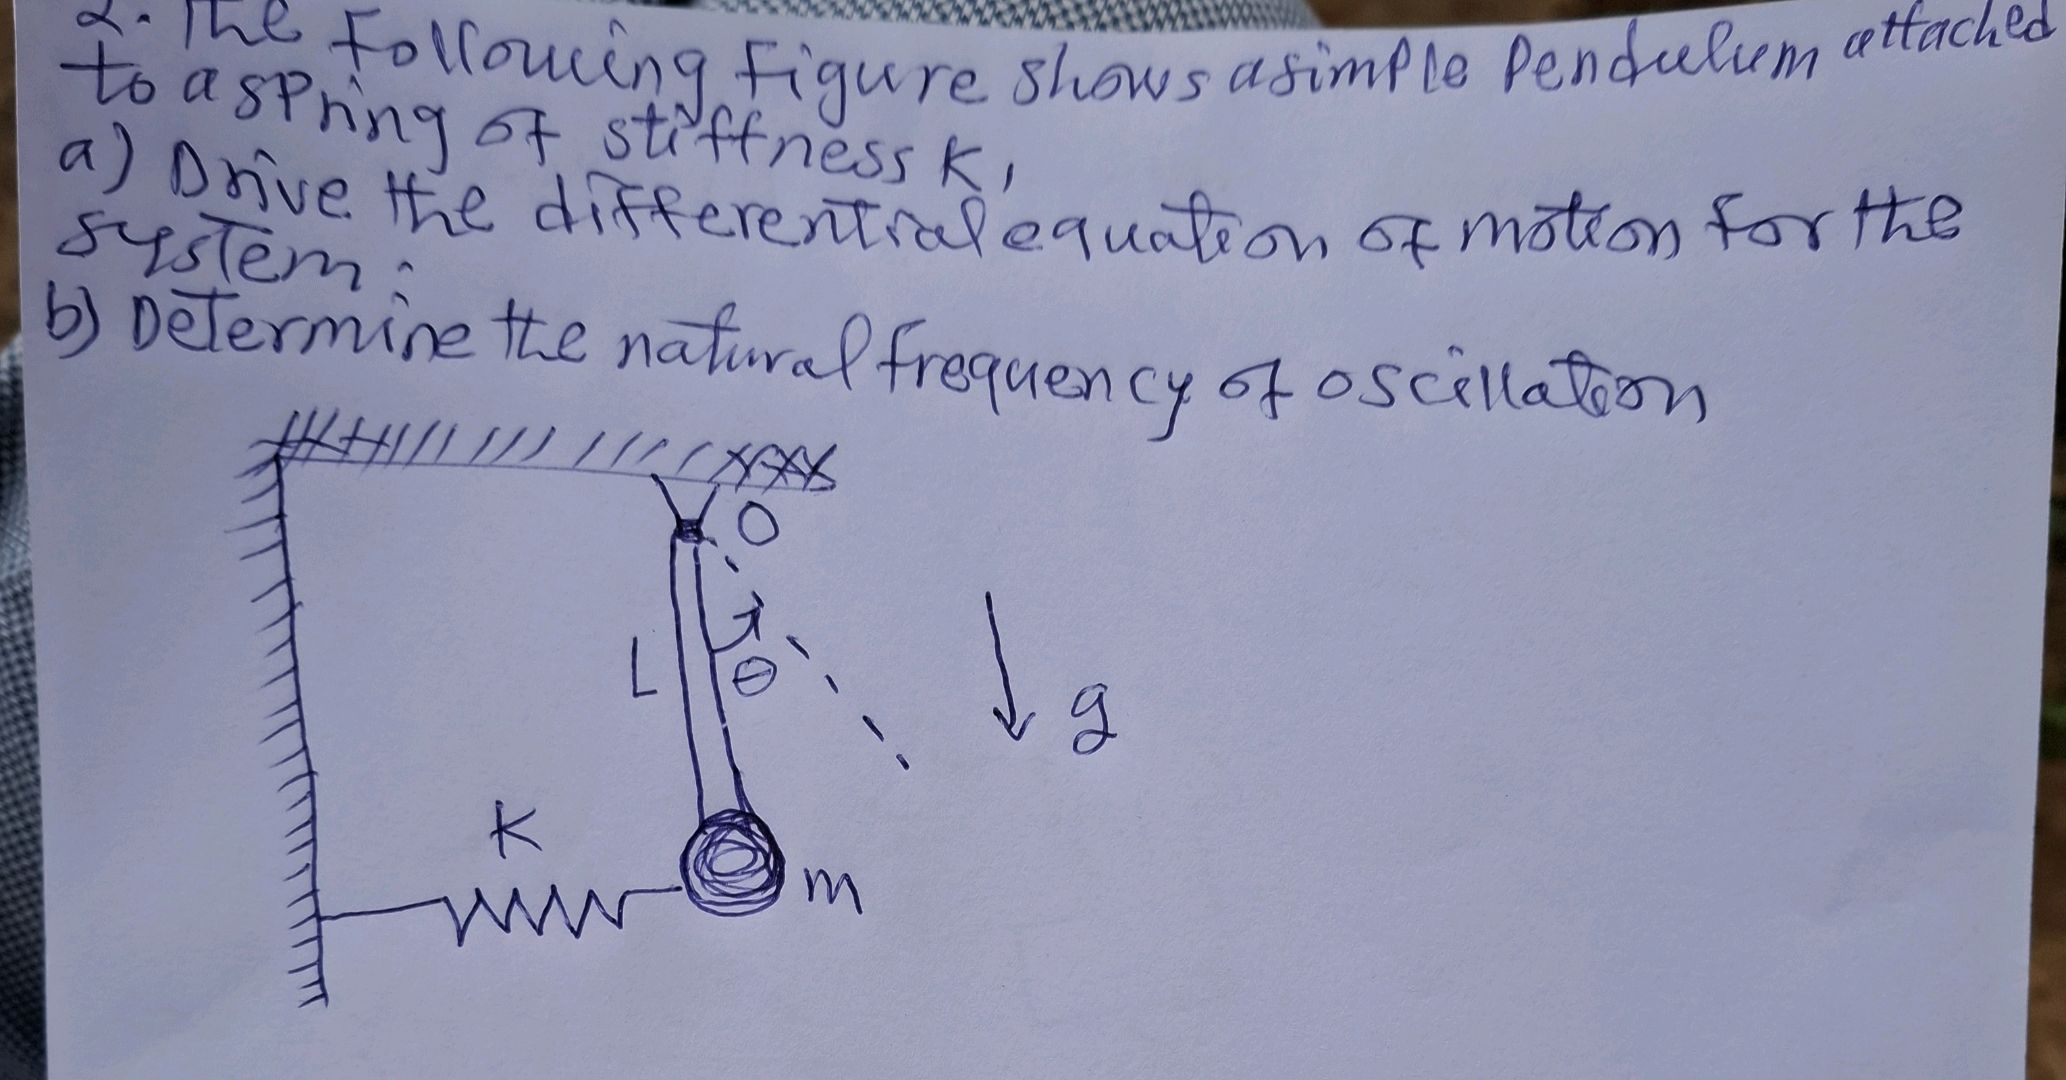 2. The Following Figure shows a simple Pendulum attached
to a spring of stiffness K,
a) Drive the differential equation of motion for the
system:
b) Determine the natural frequency of oscillation
O
L
θ
g
K
m